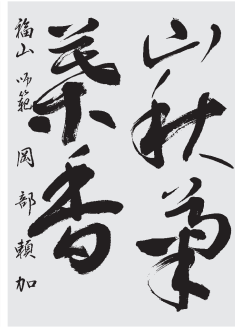 山秋菊
葉香
福山師範 岡部頼加